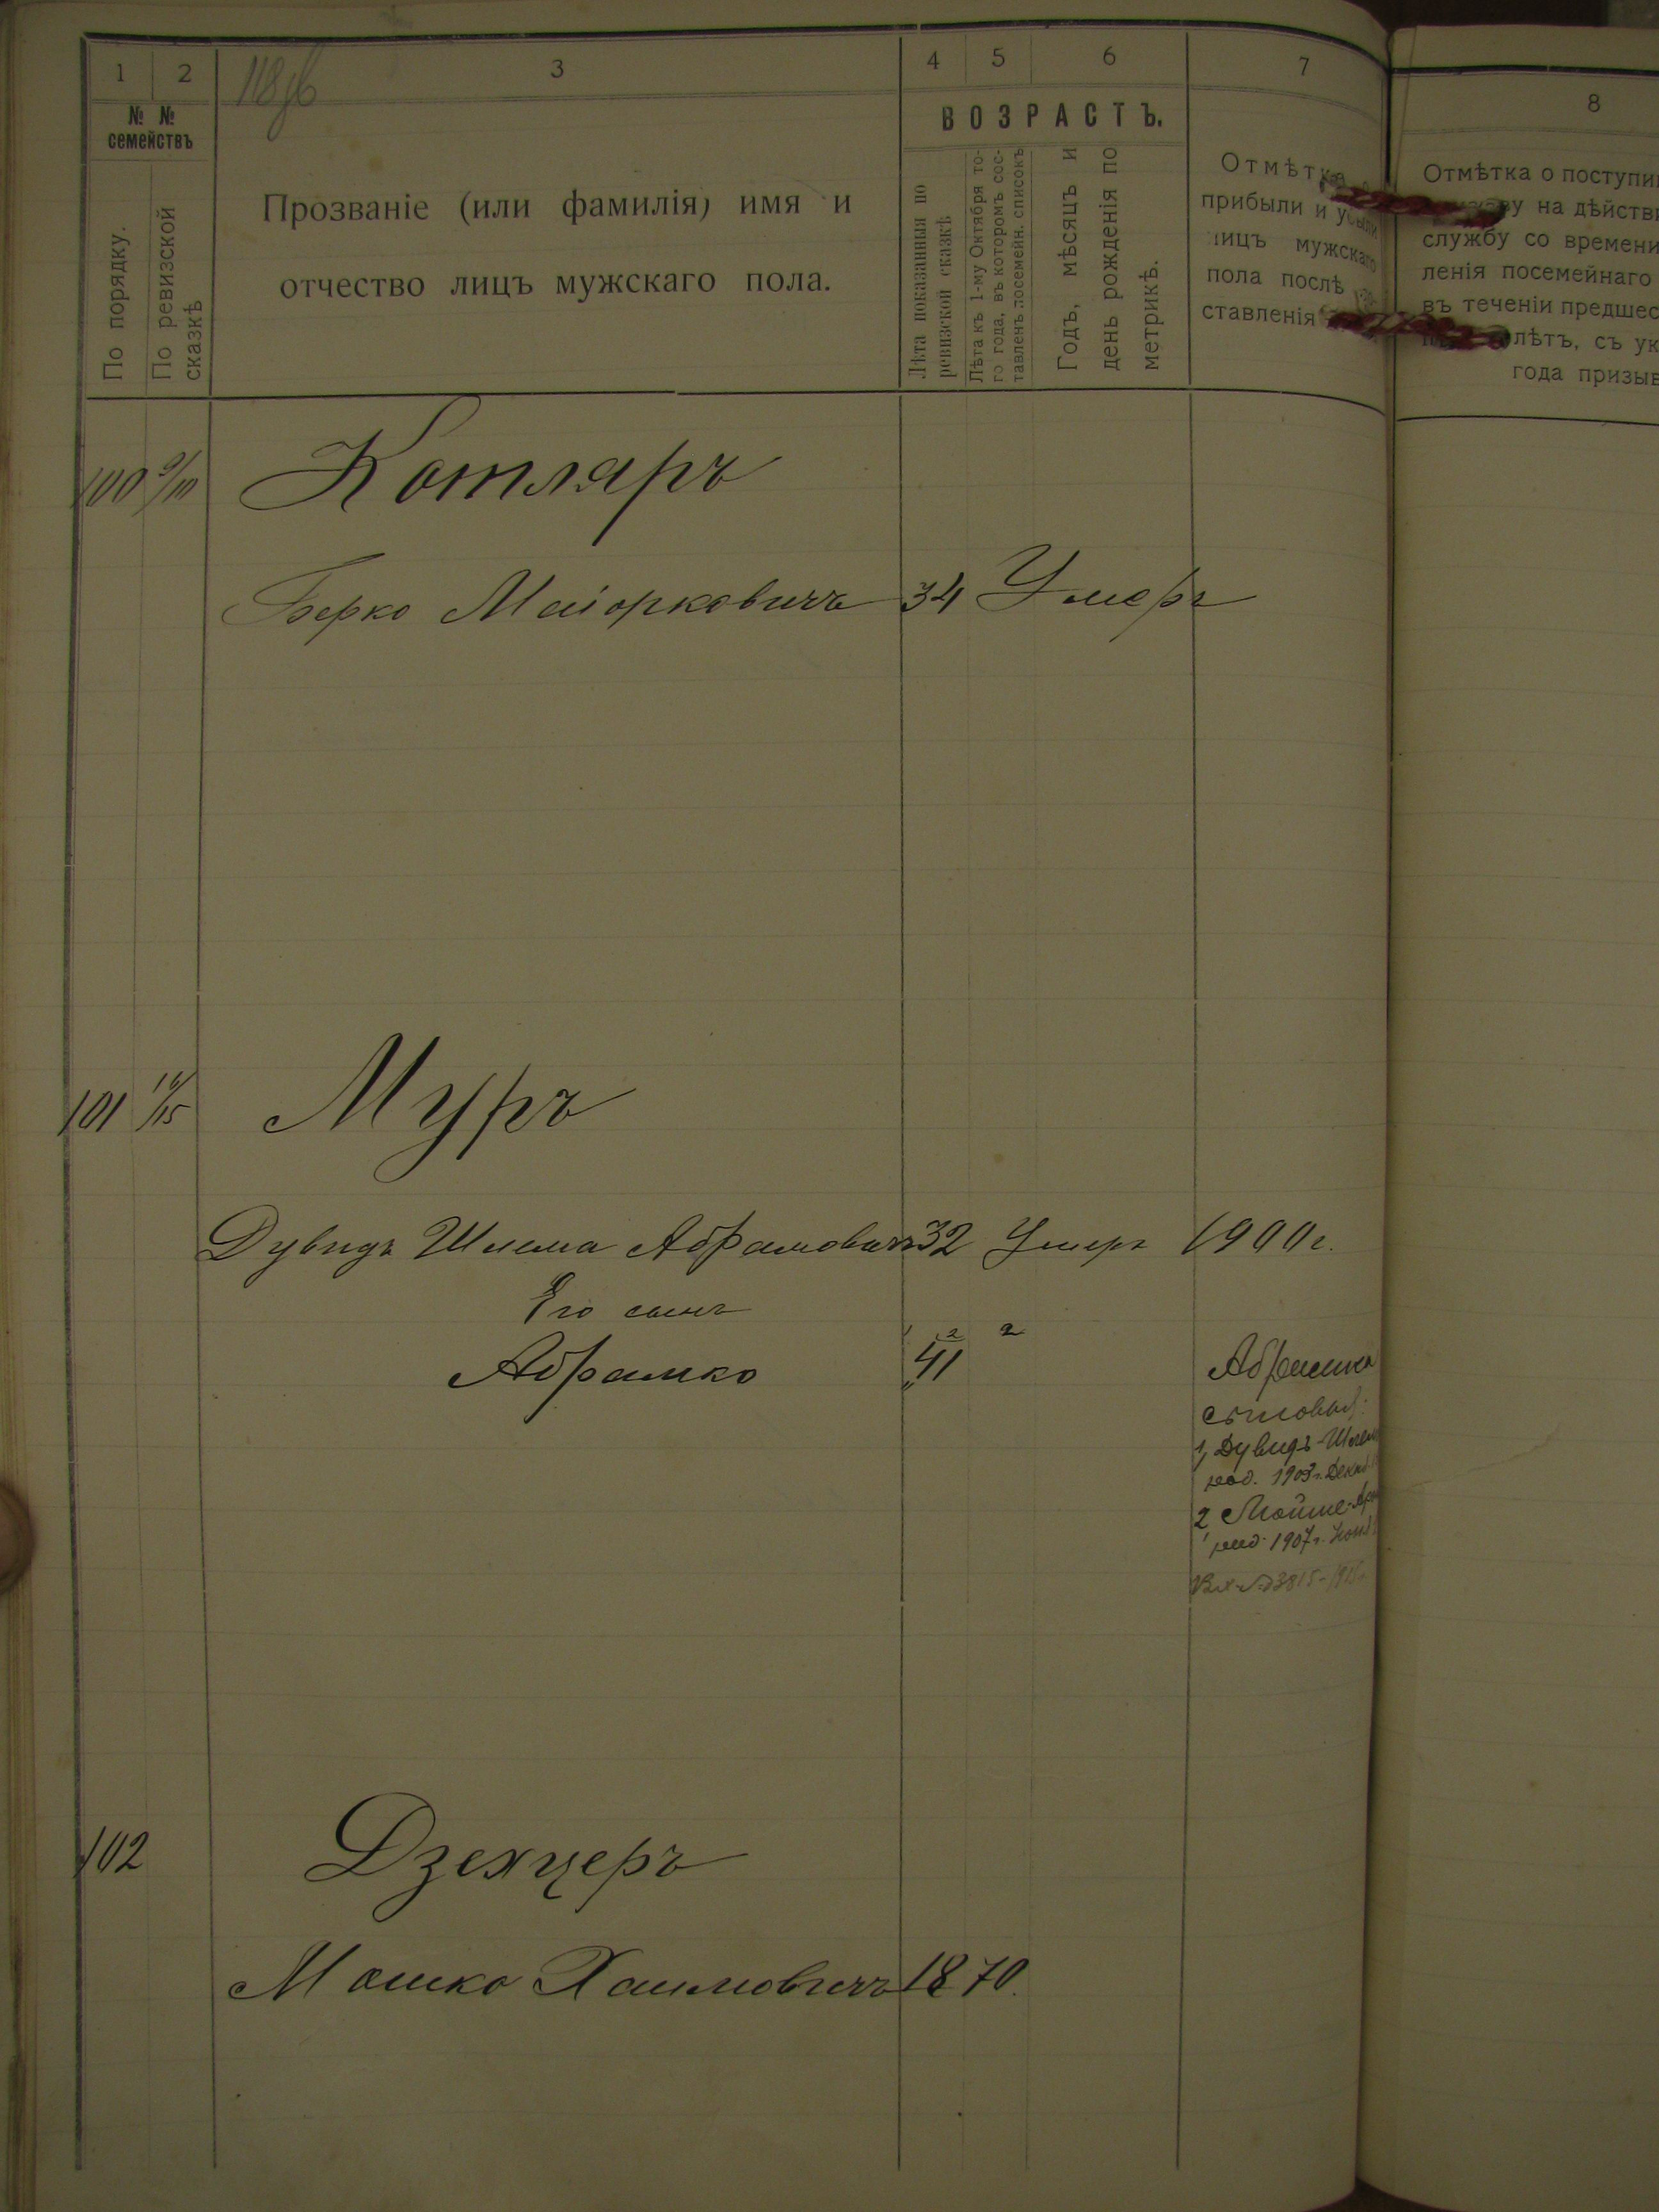 1 2 3 4 5 6 7 8
118
№ №
семействъ
По порядку.
По ревизской
сказкѣ
Прозваніе (или фамилія) имя и
отчество лицъ мужскаго пола.
ВОЗРАСТЪ.
Лѣта показанныя по
ревизской сказкѣ
Лѣта къ 1-му Октября то-
го года, въ которомъ сос-
тавленъ посемейн. списокъ
Годъ, мѣсяцъ и
день рожденія по
метрикѣ.
Отмѣтка
прибыли и убыли
лицъ мужскаго
пола послѣ
ставленія
Отмѣтка о поступи
на дѣйстви
службу со времени
ленія посемейнаго
въ теченіи предшес
лѣтъ, съ ук
года призыв
100 Котляръ
Берко Маіорковичъ 34 Умеръ
101 Муръ
Дувидъ Шлема Абрамовичъ 32 Умеръ 1900 г.
Его сынъ
Абрамко 41
Абрамка
сыновья:
1, Дувидъ-Шлем
род. 1903 г. Декаб.
2 Мойше-
род. 1907 г.
Вх № 3815-
102 Дзекцеръ
Мошко Хаимовичъ 1870.